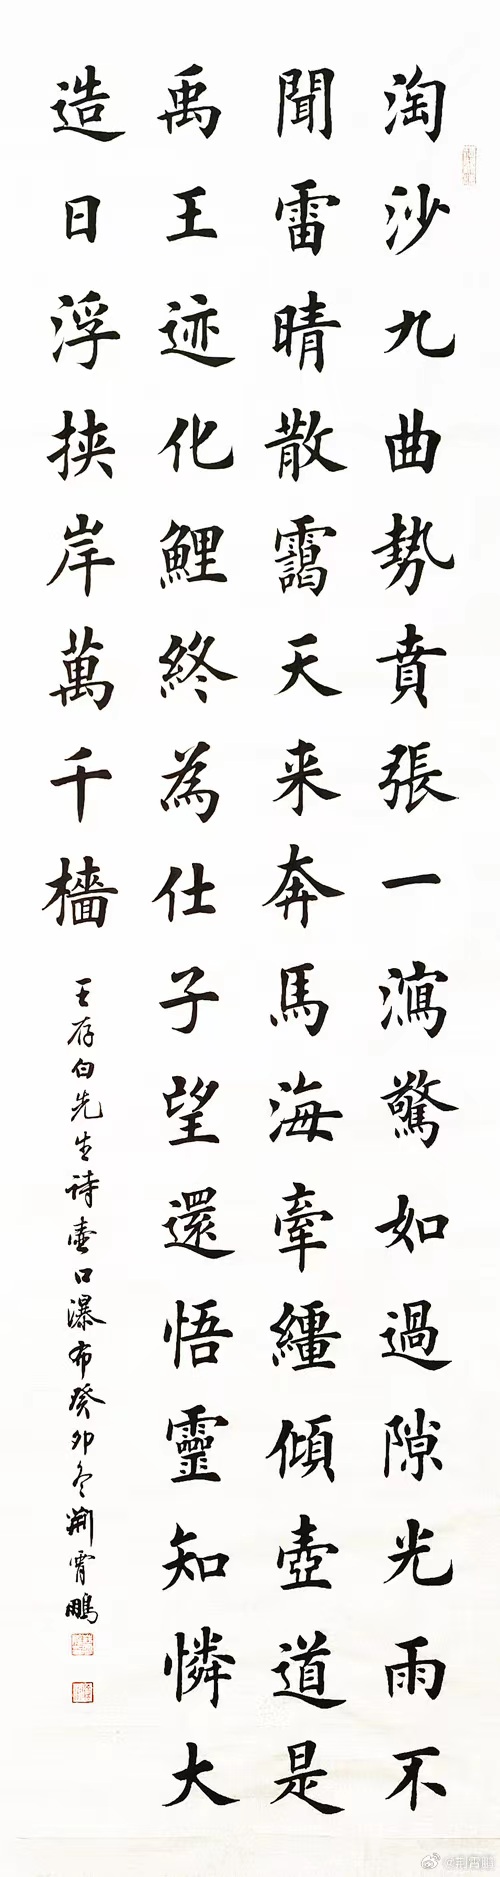 淘沙九曲勢賁張一瀉驚如過隙光雨不
聞雷晴散靄天来奔馬海牽繮傾壺道是
禹王迹化鯉終為仕子望還悟靈知憐大
造日浮挟岸萬千檣
王存白先生诗壶口瀑布癸卯冬荆霄鹏